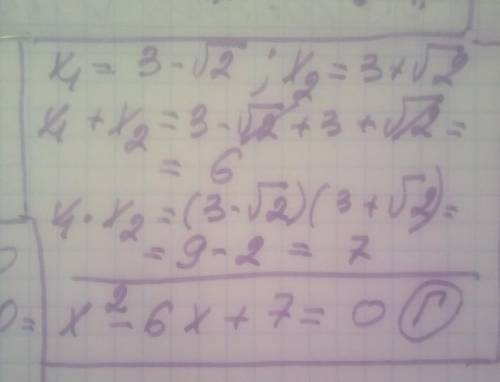 x₁ = 3 - √2 ; x₂ = 3 + √2
x₁ + x₂ = 3 - √2 + 3 + √2 =
= 6
x₁ · x₂ = (3 - √2)(3 + √2) =
= 9 - 2 = 7
x² - 6x + 7 = 0 Г